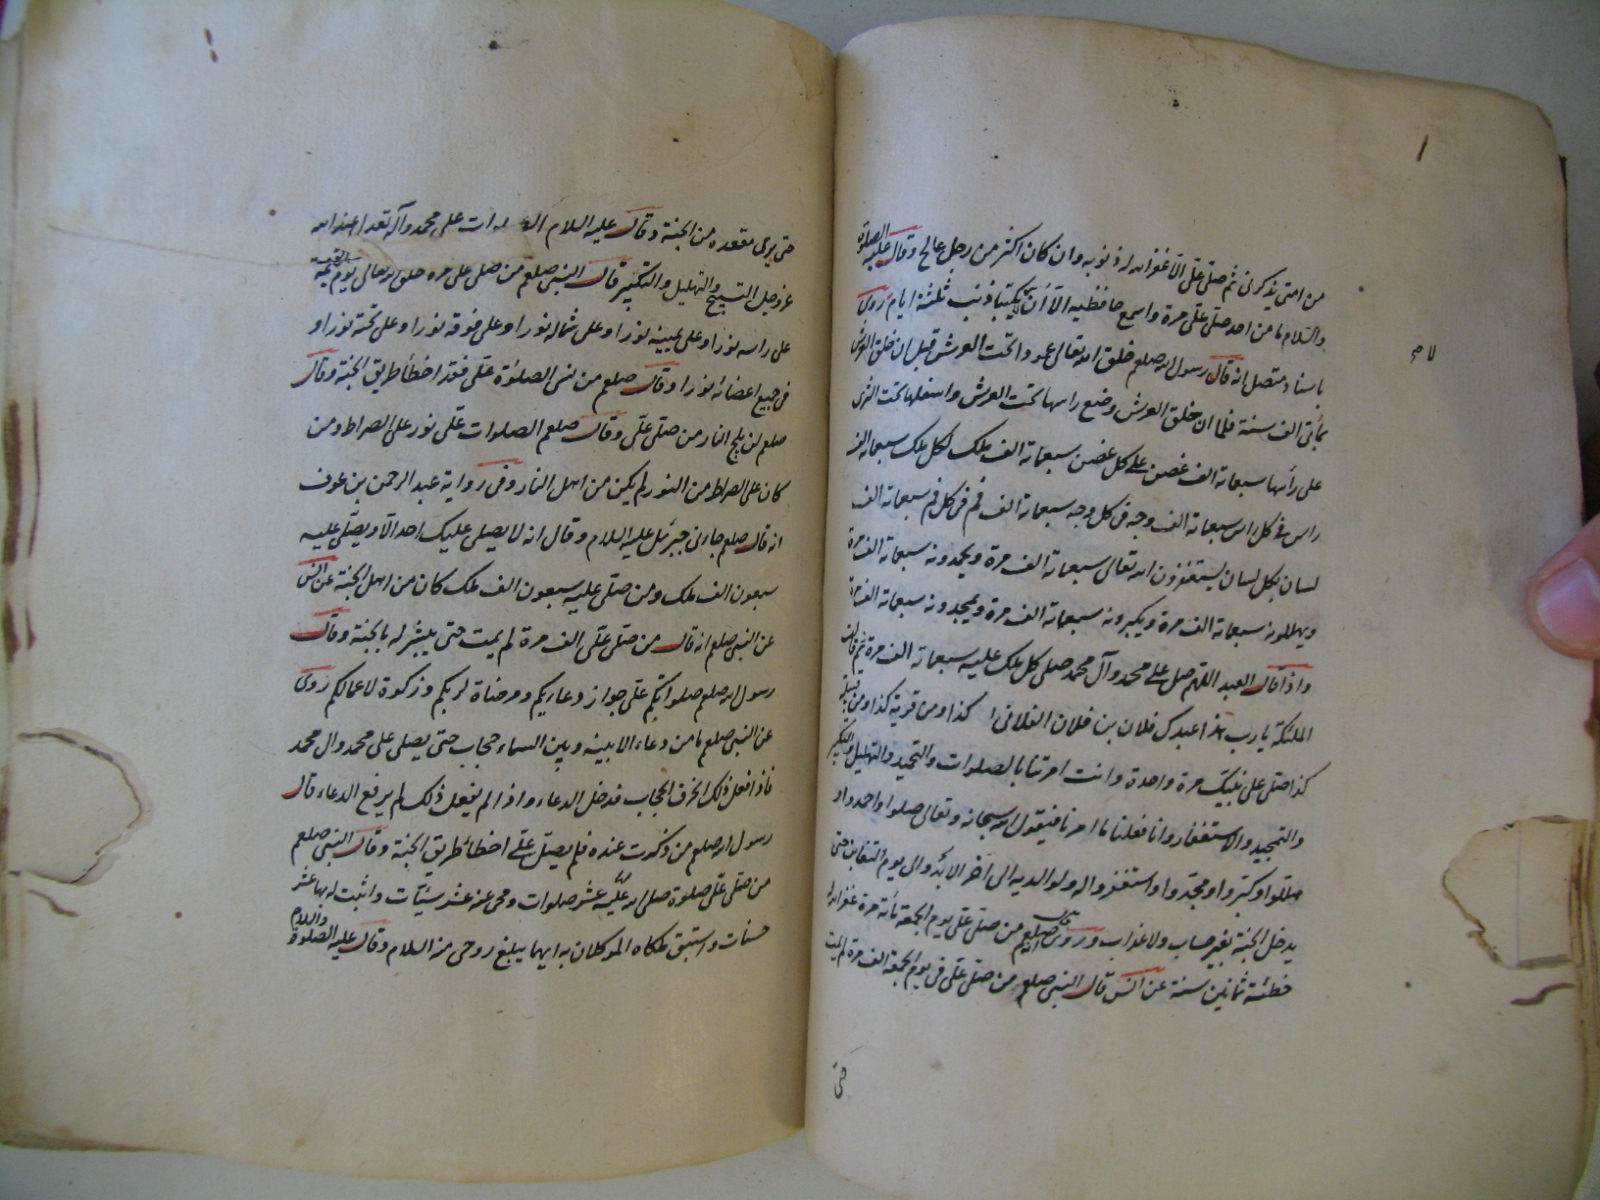 من امتى يذكرنى ثم صلّى علّى الّا غفر الله له ذنوبه وان كان اكثر من رجل عالج وقال عليه الصلوة
والسّلام ما من احد صلّى علّى مرة واسمع حافظيه الّا ان لا يكتبا ذنب ثلثة ايام روى
باسناد متصل انه قال رسول الله صلعم خلق الله تعالى عمودا تحت العرش قبل ان خلق العرش
بمأتى الف سنة فلما ان خلق العرش وضع راسها تحت العرش واسفلها تحت الثرى
على رأسها سبعمائة الف غصن على كل غصن سبعمائة الف ملك لكل ملك سبعمائة الف
راس فى كل راس سبعمائة الف وجه فى كل وجه سبعمائة الف فم فى كل فم سبعمائة الف
لسان بكل لسان يستغفرون الله تعالى سبعمائة الف مرة ويحمدونه سبعمائة الف مرة
ويهللونه سبعمائة الف مرة ويكبرونه سبعمائة الف مرة ويمجدونه سبعمائة الف مرة
واذا قال العبد اللهم صل على محمد وآل محمد صلى كل ملك عليه سبعمائة الف مرة ثم قالت
الملئكة يارب هذا عبدك فلان بن فلان الفلانى كذا ومن قرية كذا ومن قبيلة
كذا صلى على نبيّك مرة واحدة وانت امرتنا بالصلوات والتحميد والتهليل والتكبير
والتمجيد والاستغفار وانا فعلنا ما امرنا فيقول الله سبحانه وتعالى صلوا واحمدوا و
هللوا وكبّروا ومجّدوا واستغفروا له ولوالديه الى آخر الابد والى يوم التغابن حتى
يدخل الجنة بغير حساب ولا عذاب وروى قال صلعم من صلّى علّى يوم الجمعة مائة مرة غفر الله له
خطئة ثمانين سنة عن انس قال النبى صلعم من صلّى علّى فى يوم الجمعة الف مرة لم يمت
حتى
حتى يرى مقعده من الجنة وقال عليه السلام الصلوات على محمد وآله تعدل عند الله
عز وجل التسبيح والتهليل والتكبير قال النبى صلعم من صلى على مره خلق الله تعالى يوم القيمة
على راسه نورا وعلى يمينه نورا وعلى شماله نورا وعلى فوقه نورا وعلى تحته نورا و
فى جميع اعضائه نورا وقال صلعم من نسى الصلوة علّى فقد اخطأ طريق الجنة وقال
صلعم لن يلج النار من صلّى علّى وقال صلعم الصلوات علّى نور على الصراط ومن
كان على الصراط من النور لم يكن من اهل النار وفى رواية عبد الرحمن بن عوف
انه قال صلعم جاءنى جبرئيل عليه السلام وقال انه لا يصلى عليك احد الّا ويصلّى عليه
سبعون الف ملك ومن صلّى عليه سبعون الف ملك كان من اهل الجنة عن انس
عن النبى صلعم انه قال من صلّى علّى الف مرة لم يمت حتى يبشر له بالجنة وقال
رسول الله صلعم صلواتكم علّى جواز دعاءيكم ومرضاة لربكم وزكوة لاعمالكم روى
عن النبى صلعم ما من دعاء الا بينه وبين السماء حجاب حتى يصلى على محمد وال محمد
فاذا فعل ذلك انخرق الحجاب فدخل الدعاء واذا لم يفعل ذلك لم يرفع الدعاء قال
رسول الله صلعم من ذكرت عنده فلم يصلّ علّى اخطأ طريق الجنة وقال النبى صلعم
من صلّى علّى صلوة صلى الله عليه عشر صلوات ومحى عنه عشر سيّئات واثبت له بها عشر
حسنات واستبق ملكاه الموكلان به ايهما يبلغ روحى منه السلام وقال عليه الصلوة والسلام